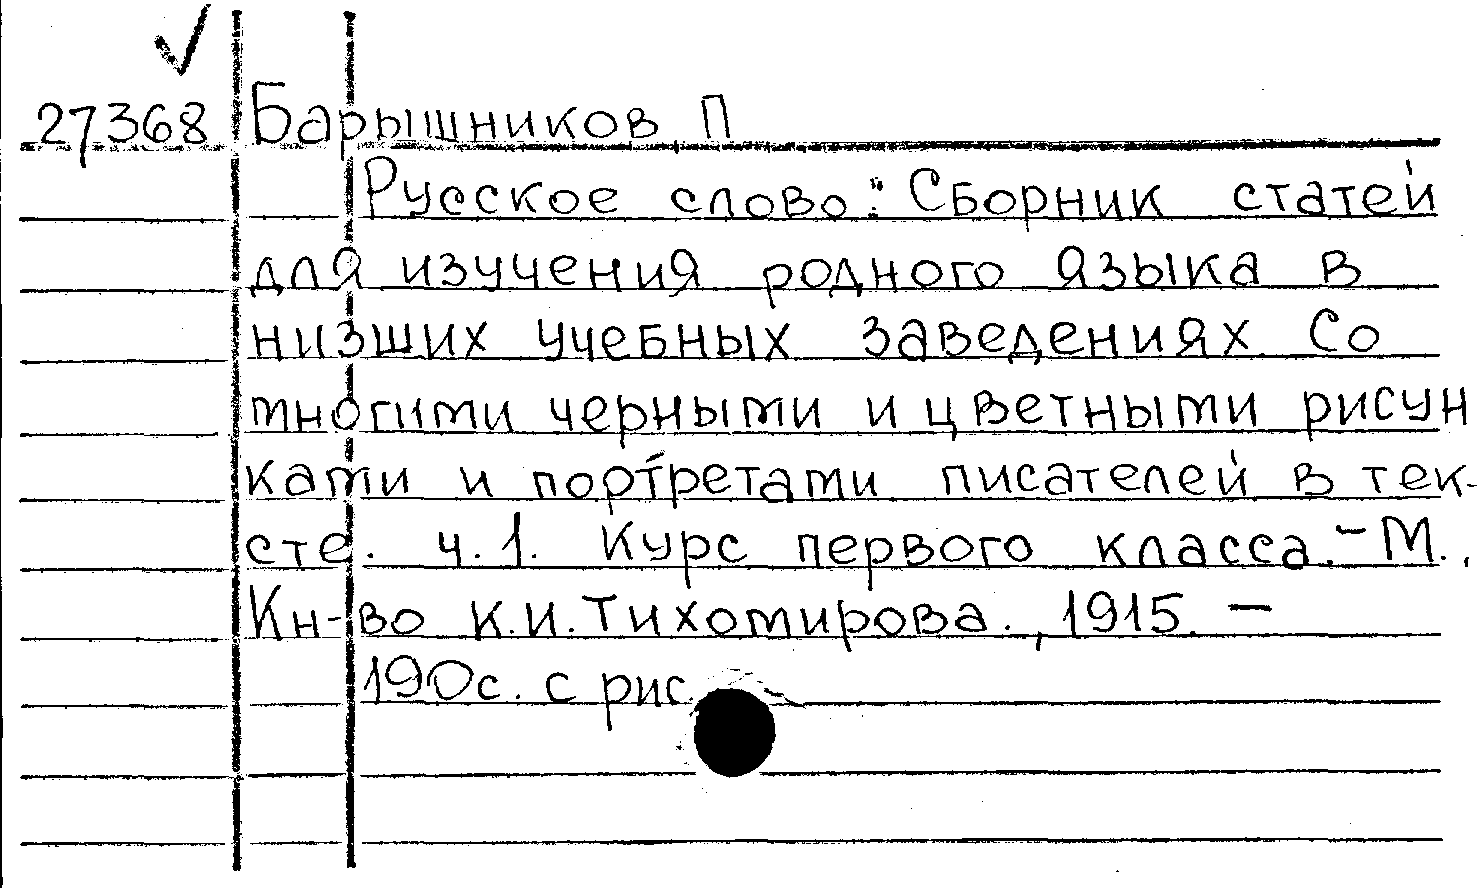 27368 Барышников П
Русское слово": Сборник статей
для изучения родного языка в
низших учебных заведениях. Со
многими черными и цветными рисун
ками и портретами писателей в тек-
сте. ч.1. Курс первого класса.-М.,
Кн-во К.И.Тихомирова., 1915. —
190с. с рис.